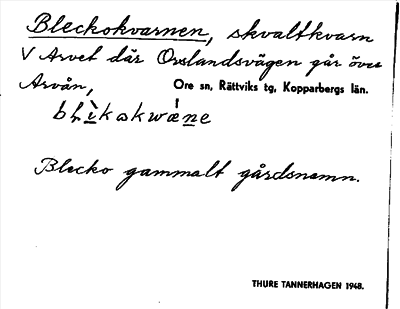 Bleckokvarnen, skvaltkvarn
V Arvet där Orslandsvägen går över
Arvån, Ore sn, Rättviks tg, Kopparbergs län.
Blecko gammalt gårdsnamn.
THURE TANNERHAGEN 1948.